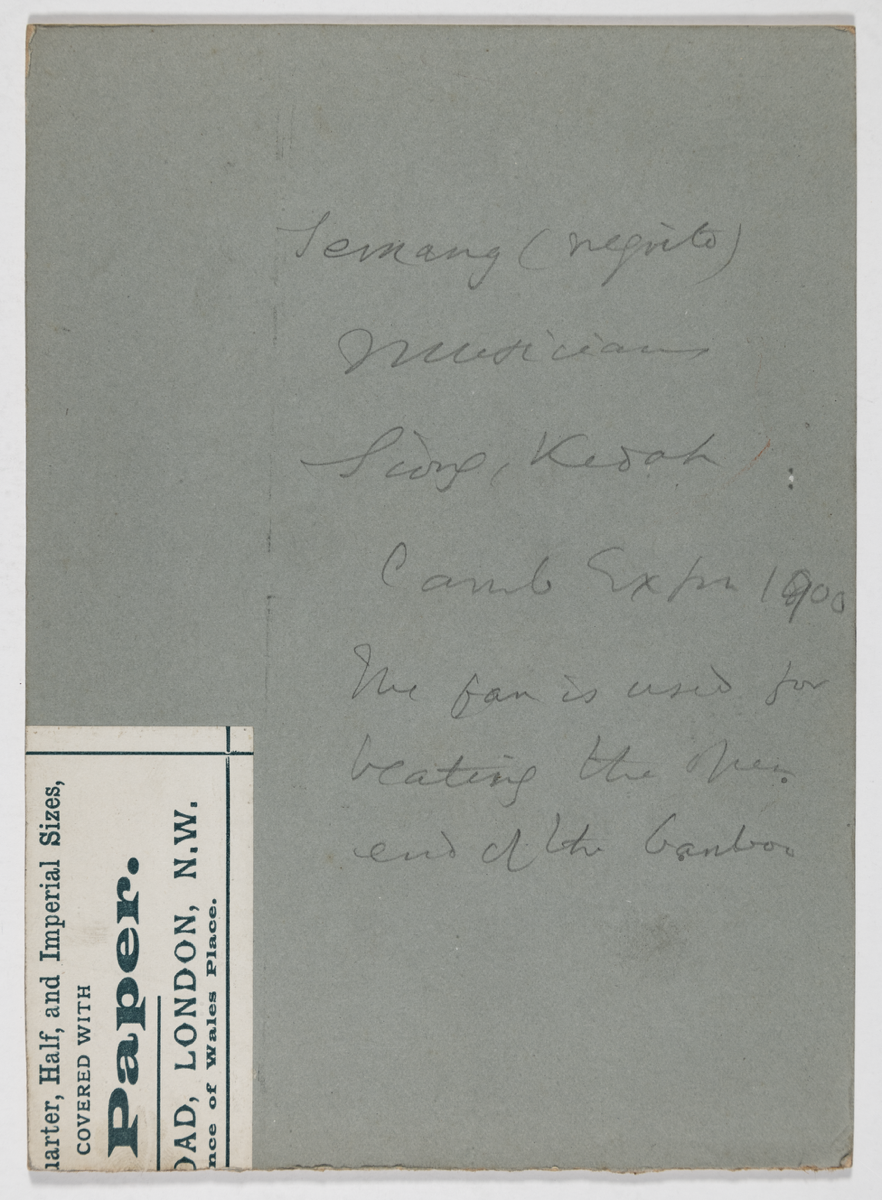 Semang (negrito)
Musicians
Siong, Kedah
Camb Expn 1900
The fan is used for
beating the open
end of the bamboo
uarter, Half, and Imperial Sizes,
COVERED WITH
Paper.
OAD, LONDON, N.W.
nce of Wales Place.